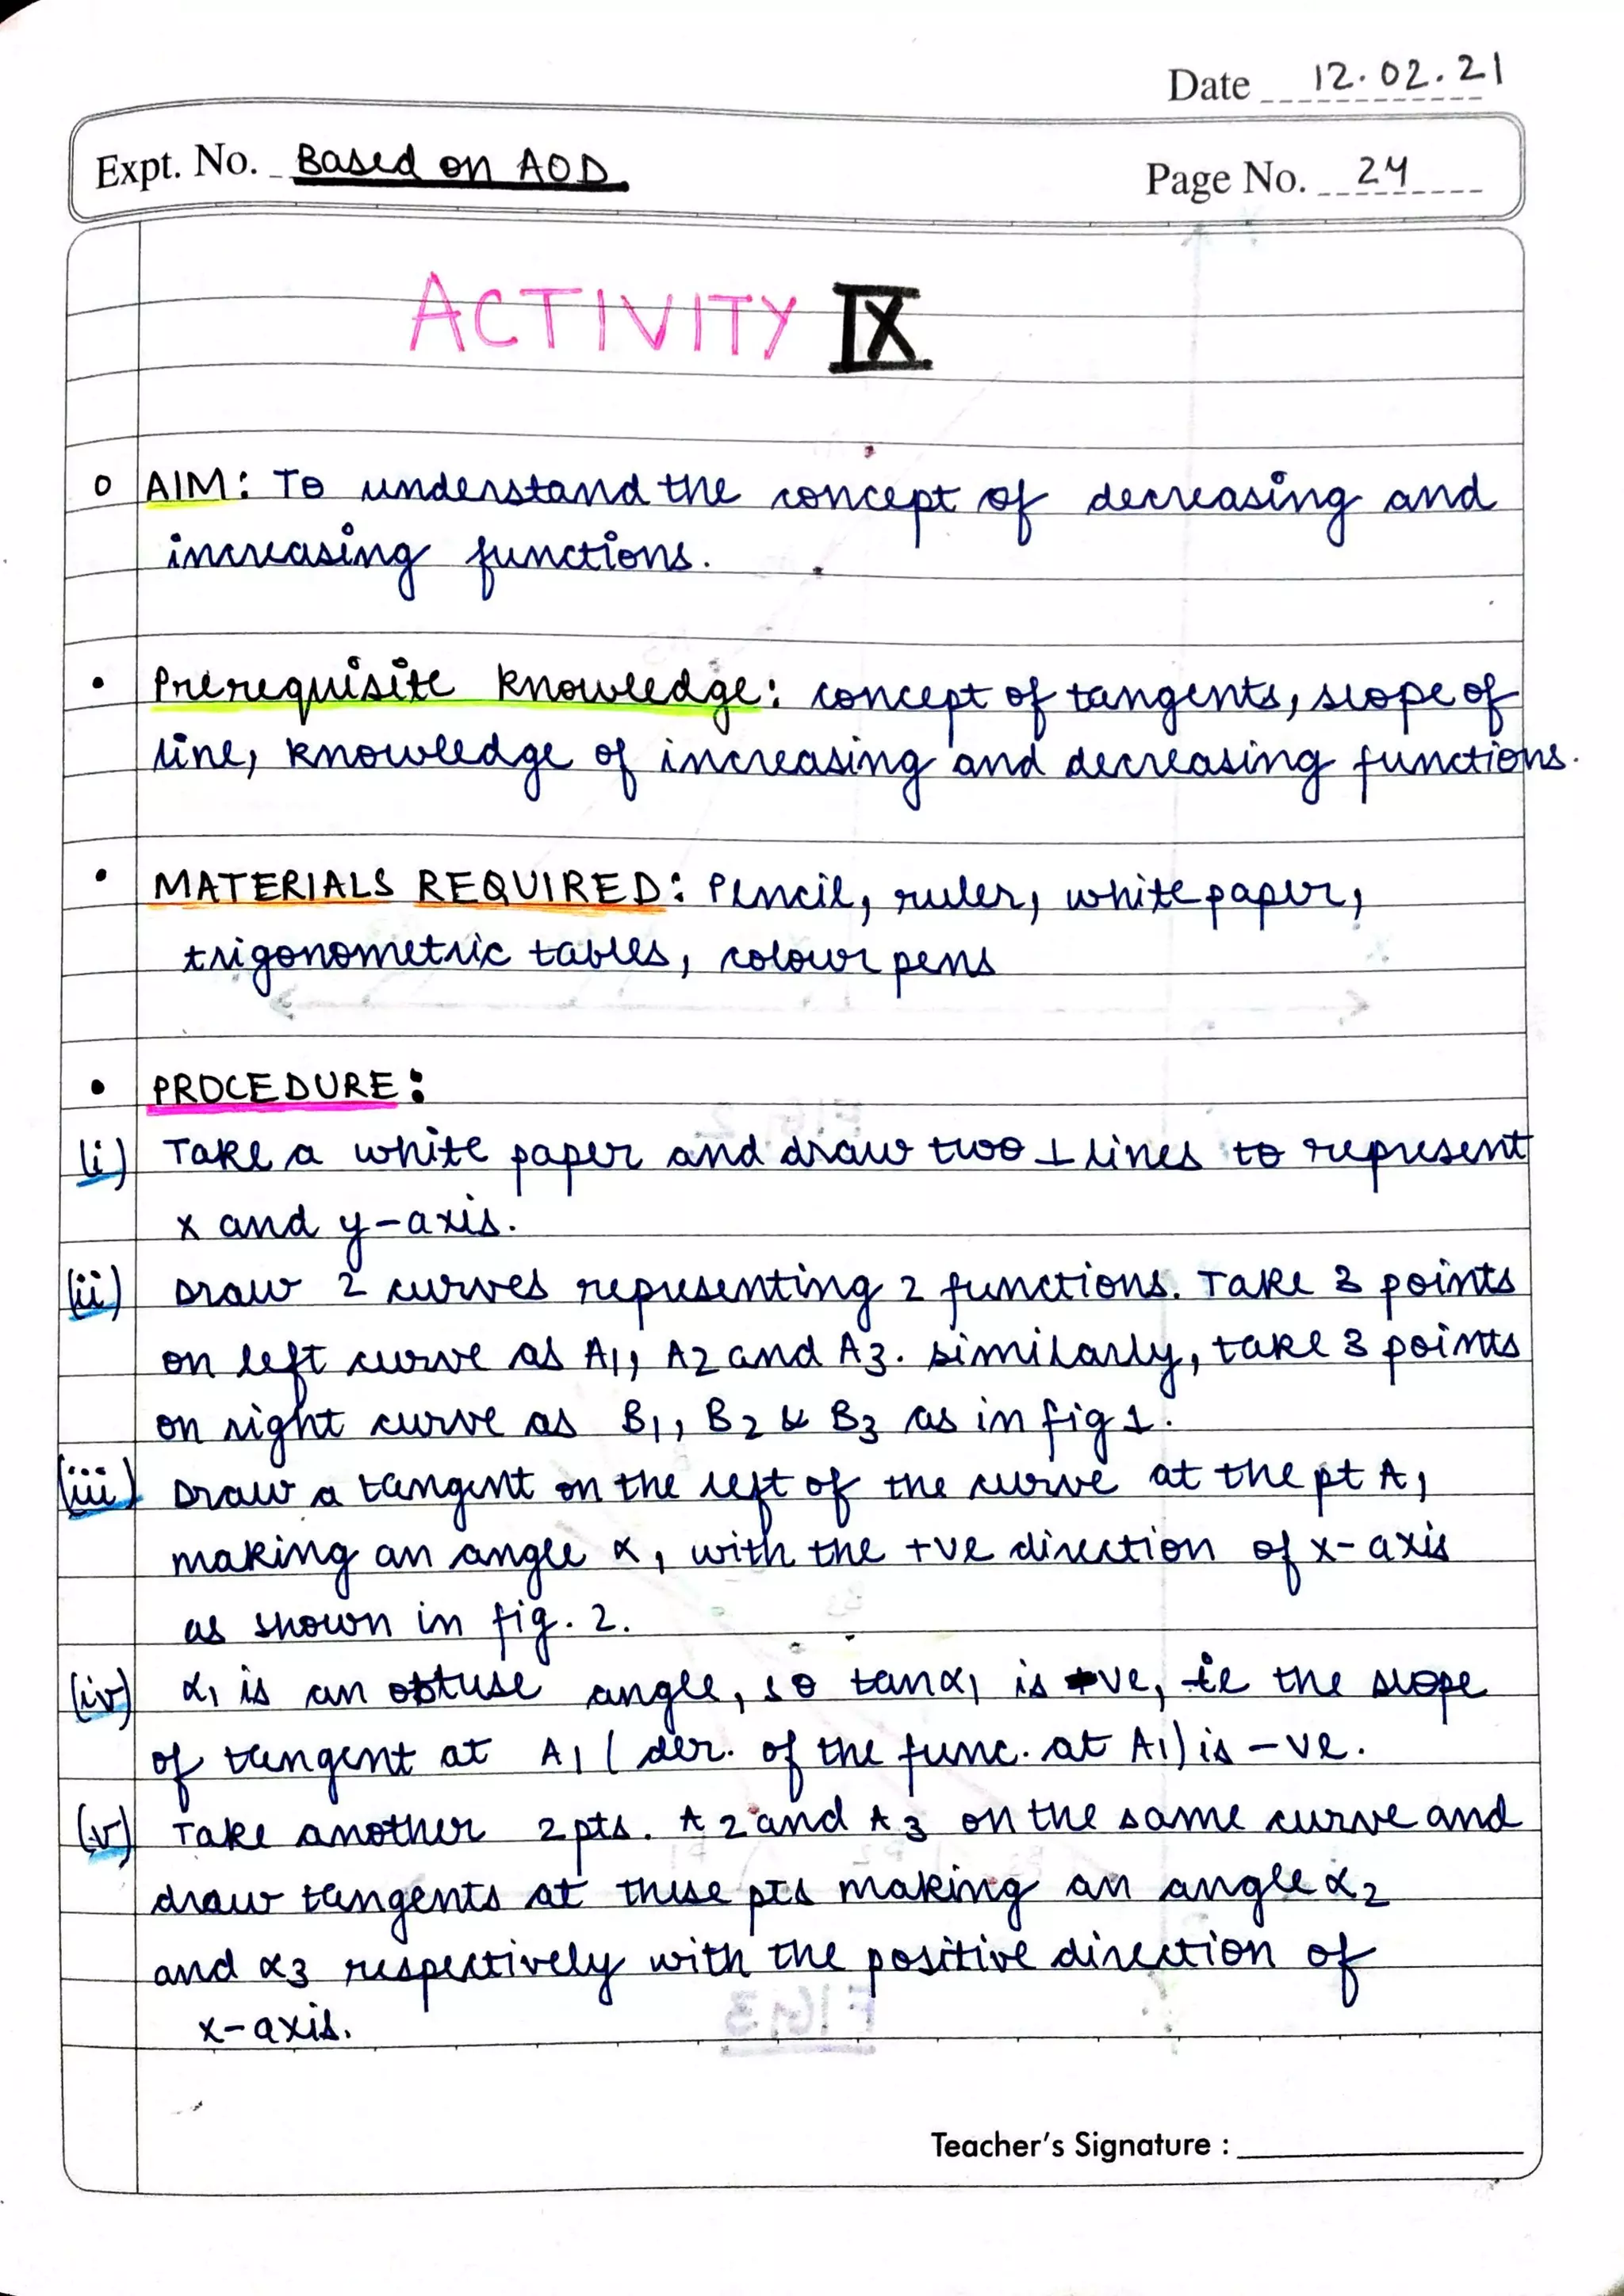 Date 12.02.21
Expt. No. Based on AOD
Page No. 24
ACTIVITY IX
o AIM: To understand the concept of decreasing and
increasing functions.
• Prerequisite knowledge: concept of tangents, slope of
line, knowledge of increasing and decreasing functions.
• MATERIALS REQUIRED: Pencil, ruler, white paper,
trigonometric tables, colour pens
• PROCEDURE:
(i) Take a white paper and draw two ⊥ lines to represent
x and y-axis.
(ii) Draw 2 curves representing 2 functions. Take 3 points
on left curve as A1, A2 and A3. similarly, take 3 points
on right curve as B1, B2 & B3 as in fig 1.
(iii) Draw a tangent on the left of the curve at the pt A1
making an angle α1 with the +ve direction of x-axis
as shown in fig. 2.
(iv) α1 is an obtuse angle, so tanα1 is -ve, ie the slope
of tangent at A1 (der. of the func. at A1) is -ve.
(v) Take another 2 pts. A2 and A3 on the same curve and
draw tangents at these pts making an angle α2
and α3 respectively with the positive direction of
x-axis.
Teacher's Signature :